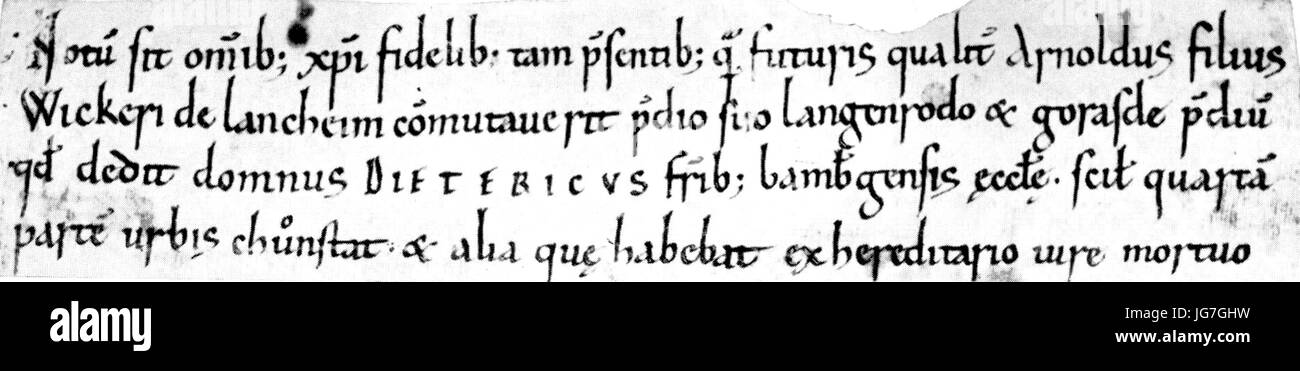 Notū sit om̄ib; xp̄i fidelib; tam p̄sentib; q̄ futuris qualit̄ Arnoldus filius
Wickeri de lancheim cōmutauerit p̄dio suo langenrodo & gorasde p̄diū
qđ dedit domnus DIETERICVS fr̄ib; bamb̄gensis ęccłę. scił quartā
partē urbis chůnstat. & alia quę habebat ex hereditario iure mortuo
alamy
Image ID: JG7GHW
www.alamy.com